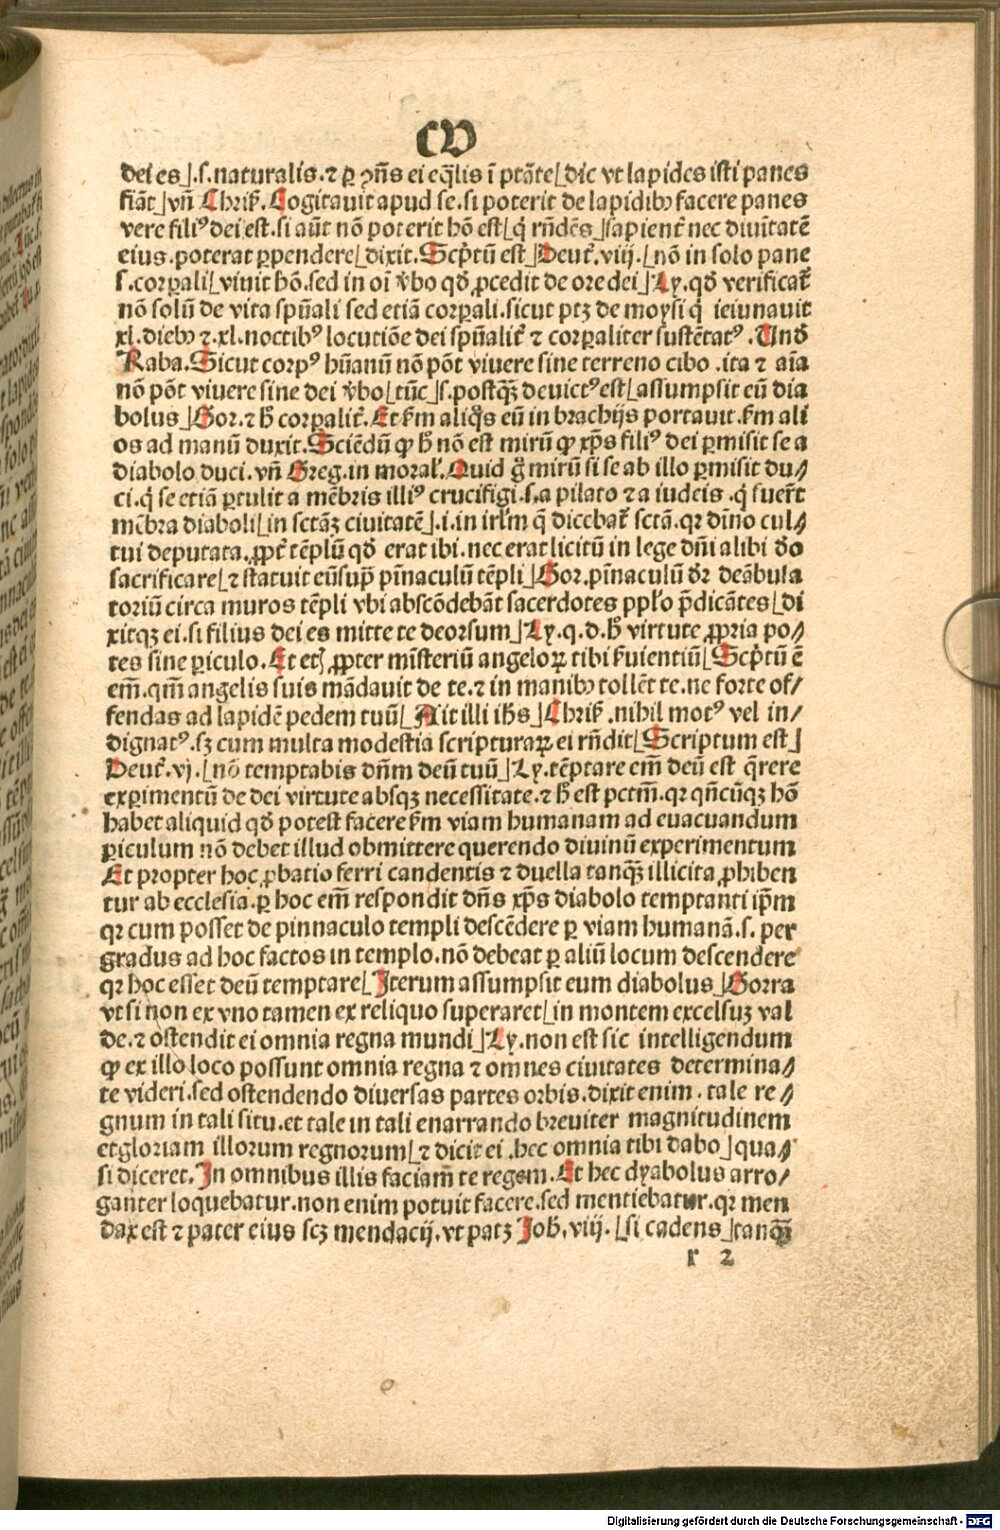 CV
dei es⌋.ſ.naturalis.⁊ ꝑ ꝯñs ei eq̄lis ī ptāte⌊dic vt lapides iſti panes
fiāt⌋vñ Chriſ. Cogitauit apud ſe.ſi poterit de lapidibꝰ facere panes
vere filiꝰ dei eſt.ſi aūt nō poterit hō eſt⌊q̇ rn̄dēs⌋ſapient̄ nec diuītatē
eius.poterat ꝑpendere⌊dixit.Scp̄tū eſt⌋Deut̄.viij.⌊nō in ſolo pane
ſ.corꝑali⌊viuit hō.ſed in oī v̄bo qd̄ ꝓcedit de ore dei⌋Ly.qd̄ verificat̄
nō ſolū de vita ſpūali ſed etiā corꝑali.ſicut ptꝫ de moyſi q̇ ieiunauit
xl.diebꝰ ⁊.xl.noctibꝰ locutiōe dei ſpūalit̄ ⁊ corꝑaliter ſuſtētatꝰ.Unð
Raba.Sicut corpꝰ hūanū nō pōt viuere ſine terreno cibo.ita ⁊ aīa
nō pōt viuere ſine dei v̄bo⌊tūc⌋ſ.poſtqꝫ̄ deuictꝰ eſt⌊aſſumpſit eū dia
bolus⌋Gor.⁊ ħ corꝑalit̄.Et ẜm aliq̊s eū in brachijs portauit.ẜm ali
os ad manū duxit.Sciēdū ꝙ ħ nō eſt mirū ꝙ xp̄s filiꝰ dei ꝑmiſit ſe a
diabolo duci.vñ Greg.in moral̄.Quid g̊ mirū ſi ſe ab illo ꝑmiſit du⸗
ci.q̇ ſe etiā ꝑtulit a mēbris illiꝰ crucifigi.ſ.a pilato ⁊ a iudeis.q̇ fuer̄t
mēbra diaboli⌊in ſctāꝫ ciuitatē⌋.i.in irl̄m q̄ dicebat̄ ſctā.qꝛ dīno cul⸗
tui deputata.ꝓpt̄ tēplū qd̄ erat ibi.nec erat licitū in lege dn̄i alibi ðo
ſacrificare⌊⁊ ſtatuit eū ſup̄ pīnaculū tēpli⌋Gor.pīnaculū ðꝛ deābula
toriū circa muros tēpli vbi abſcōdebāt ſacerdotes ppl̄o p̄dicātes⌊di
xitqꝫ ei.ſi filius dei es mitte te deorſum⌋Ly.q.d.ħ virtute ꝓpria po⸗
tes ſine ꝑiculo.Et etꝫ ꝓpter mīſteriū angeloꝝ tibi ẜuientiū⌊Scp̄tū ē
em̄.qm̄ angelis ſuis mādauit de te.⁊ in manibꝰ tollēt te.ne forte of⸗
fendas ad lapidē pedem tuū⌊Ait illi ih̄s⌋Chriſ.nihil motꝰ vel in⸗
dignatꝰ.ſꝫ cum multa modeſtia ſcripturaꝝ ei rn̄dit⌊Scriptum eſt⌋
Deut̄.vj.⌊nō temptabis dn̄m deū tuū⌋Ly.tēptare em̄ deū eſt q̄rere
exꝑimentū de dei virtute abſqꝫ neceſſitate.⁊ ħ eſt pctm̄.qꝛ qn̄cūqꝫ hō
habet aliquid qd̄ poteſt facere ẜm viam humanam ad euacuandum
ꝑiculum nō debet illud obmittere querendo diuinū experimentum
Et propter hoc ꝓbatio ferri candentis ⁊ duella tanqꝫ̄ illicita ꝓhiben
tur ab eccleſia.ꝑ hoc em̄ reſpondit dn̄s xp̄s diabolo temptanti ip̄m
qꝛ cum poſſet de pinnaculo templi deſcēdere ꝑ viam humanā.ſ. per
gradus ad hoc factos in templo.nō debeat ꝑ aliū locum deſcendere
qꝛ hoc eſſet deū temptare⌊Iterum aſſumpſit eum diabolus⌋Gorra
vt ſi non ex vno tamen ex reliquo ſuperaret⌊in montem excelſuꝫ val
de.⁊ oſtendit ei omnia regna mundi⌋Ly.non eſt ſic intelligendum
ꝙ ex illo loco poſſunt omnia regna ⁊ omnes ciuitates determina⸗
te videri.ſed oſtendendo diuerſas partes orbis.dixit enim.tale re⸗
gnum in tali ſitu.et tale in tali enarrando breuiter magnitudinem
et gloriam illorum regnorum⌊⁊ dicit ei.hec omnia tibi dabo⌋qua⸗
ſi diceret.In omnibus illis faciam̄ te regem.Et hec dyabolus arro⸗
ganter loquebatur.non enim potuit facere.ſed mentiebatur.qꝛ men
dax eſt ⁊ pater eius ſcꝫ mendacij.vt patꝫ Joh̄.viij.⌊ſi cadens⌋tanqꝫ̄
r 2
Digitalisierung gefördert durch die Deutsche Forschungsgemeinschaft - DFG